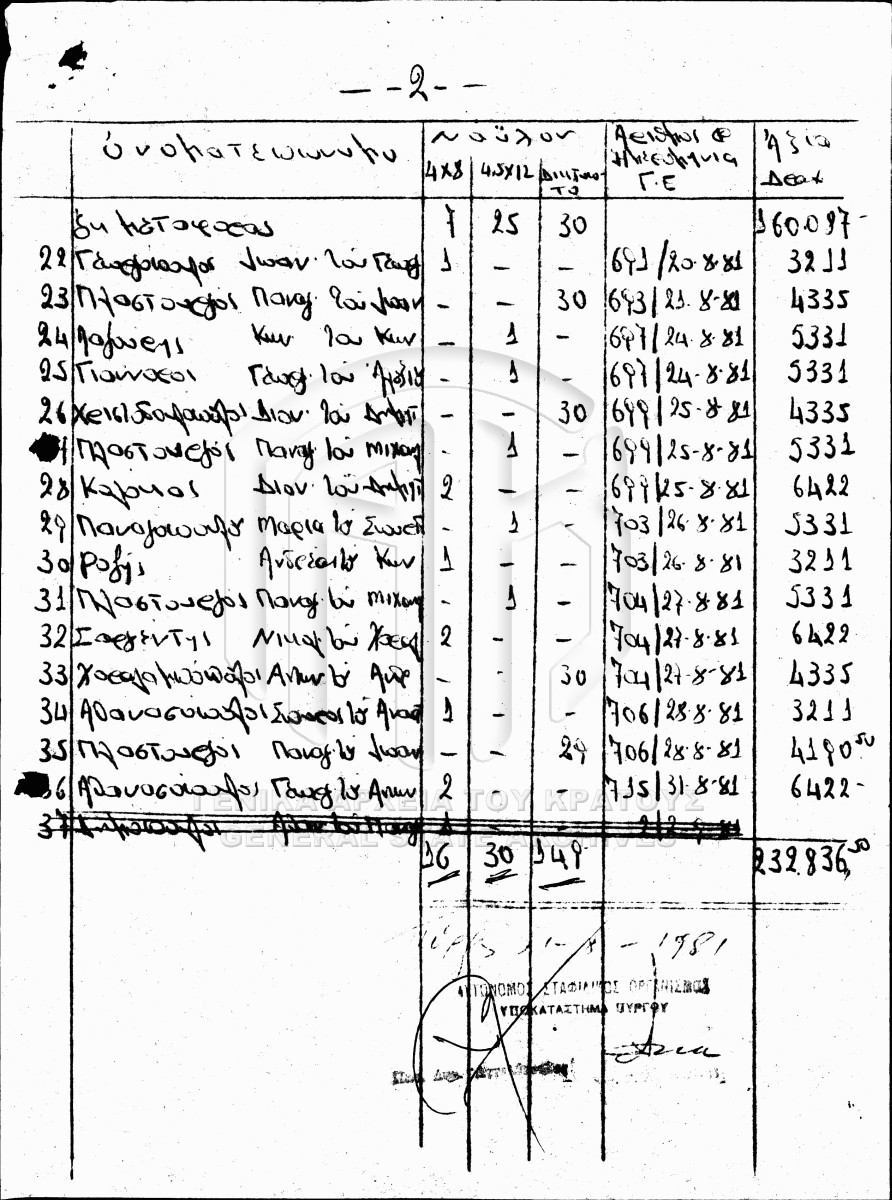 - - 2 - -
Ὀνοματεπώνυμο Νάϋλον Ἀριθμός & Ἀξία
4Χ8 4.5Χ12 Δίχτυα Ἡμερομηνία Δραχ
το Γ.Ε
Ἐκ μεταφορᾶς 7 25 30 160.097-
22 Γεωργόπουλος Ιωαν. του Γεωργ 1 - - 691/20.8.81 3211
23 Πλαστουργός Παναγ. του Ιωαν - - 30 693/21.8.81 4335
24 Λαζούρης Κων. του Κων - 1 - 697/24.8.81 5331
25 Γιαννακός Γεωργ. του Αλεξίου - 1 - 697/24-8.81 5331
26 Χριστοδουλόπουλος Διον. του Δημητ - - 30 699/25-8.81 4335
Πλαστουργός Παναγ του Μιχαηλ - 1 - 699/25-8-81 5331
28 Διον. του Δημητ 2 - - 699/25-8.81 6422
29 Παναγοπούλου Μαρία του - 1 - 703/26.8.81 5331
30 Ροζής Ανδρέας του Κων 1 - - 703/26.8.81 3211
31 Πλαστουργός Παναγ του Μιχαηλ - 1 - 704/27.8.81 5331
32 Σαργέντης Νικολ του 2 - - 704/27.8.81 6422
33 Χαραλαμπόπουλος Αντων του Ανδρ - - 30 704/27-8-81 4335
34 Αθανασόπουλος Σπυρος του Αναστ 1 - - 706/28.8.81 3211
35 Πλαστουργός Παναγ του Ιωαν - - 29 706/28.8.81 4190 50
36 Αθανασόπουλος Γεωργ του Αντων 2 - - 715/31.8.81 6422-
37 Δημόπουλος 1 - -
ΓΕΝΙΚΑ ΑΡΧΕΙΑ ΤΟΥ ΚΡΑΤΟΥΣ
GENERAL STATE ARCHIVES
16 30 149 232.836,50
1981
ΑΥΤΟΝΟΜΟΣ ΣΤΑΦΙΔΙΚΟΣ ΟΡΓΑΝΙΣΜΟΣ
ΥΠΟΚΑΤΑΣΤΗΜΑ ΠΥΡΓΟΥ